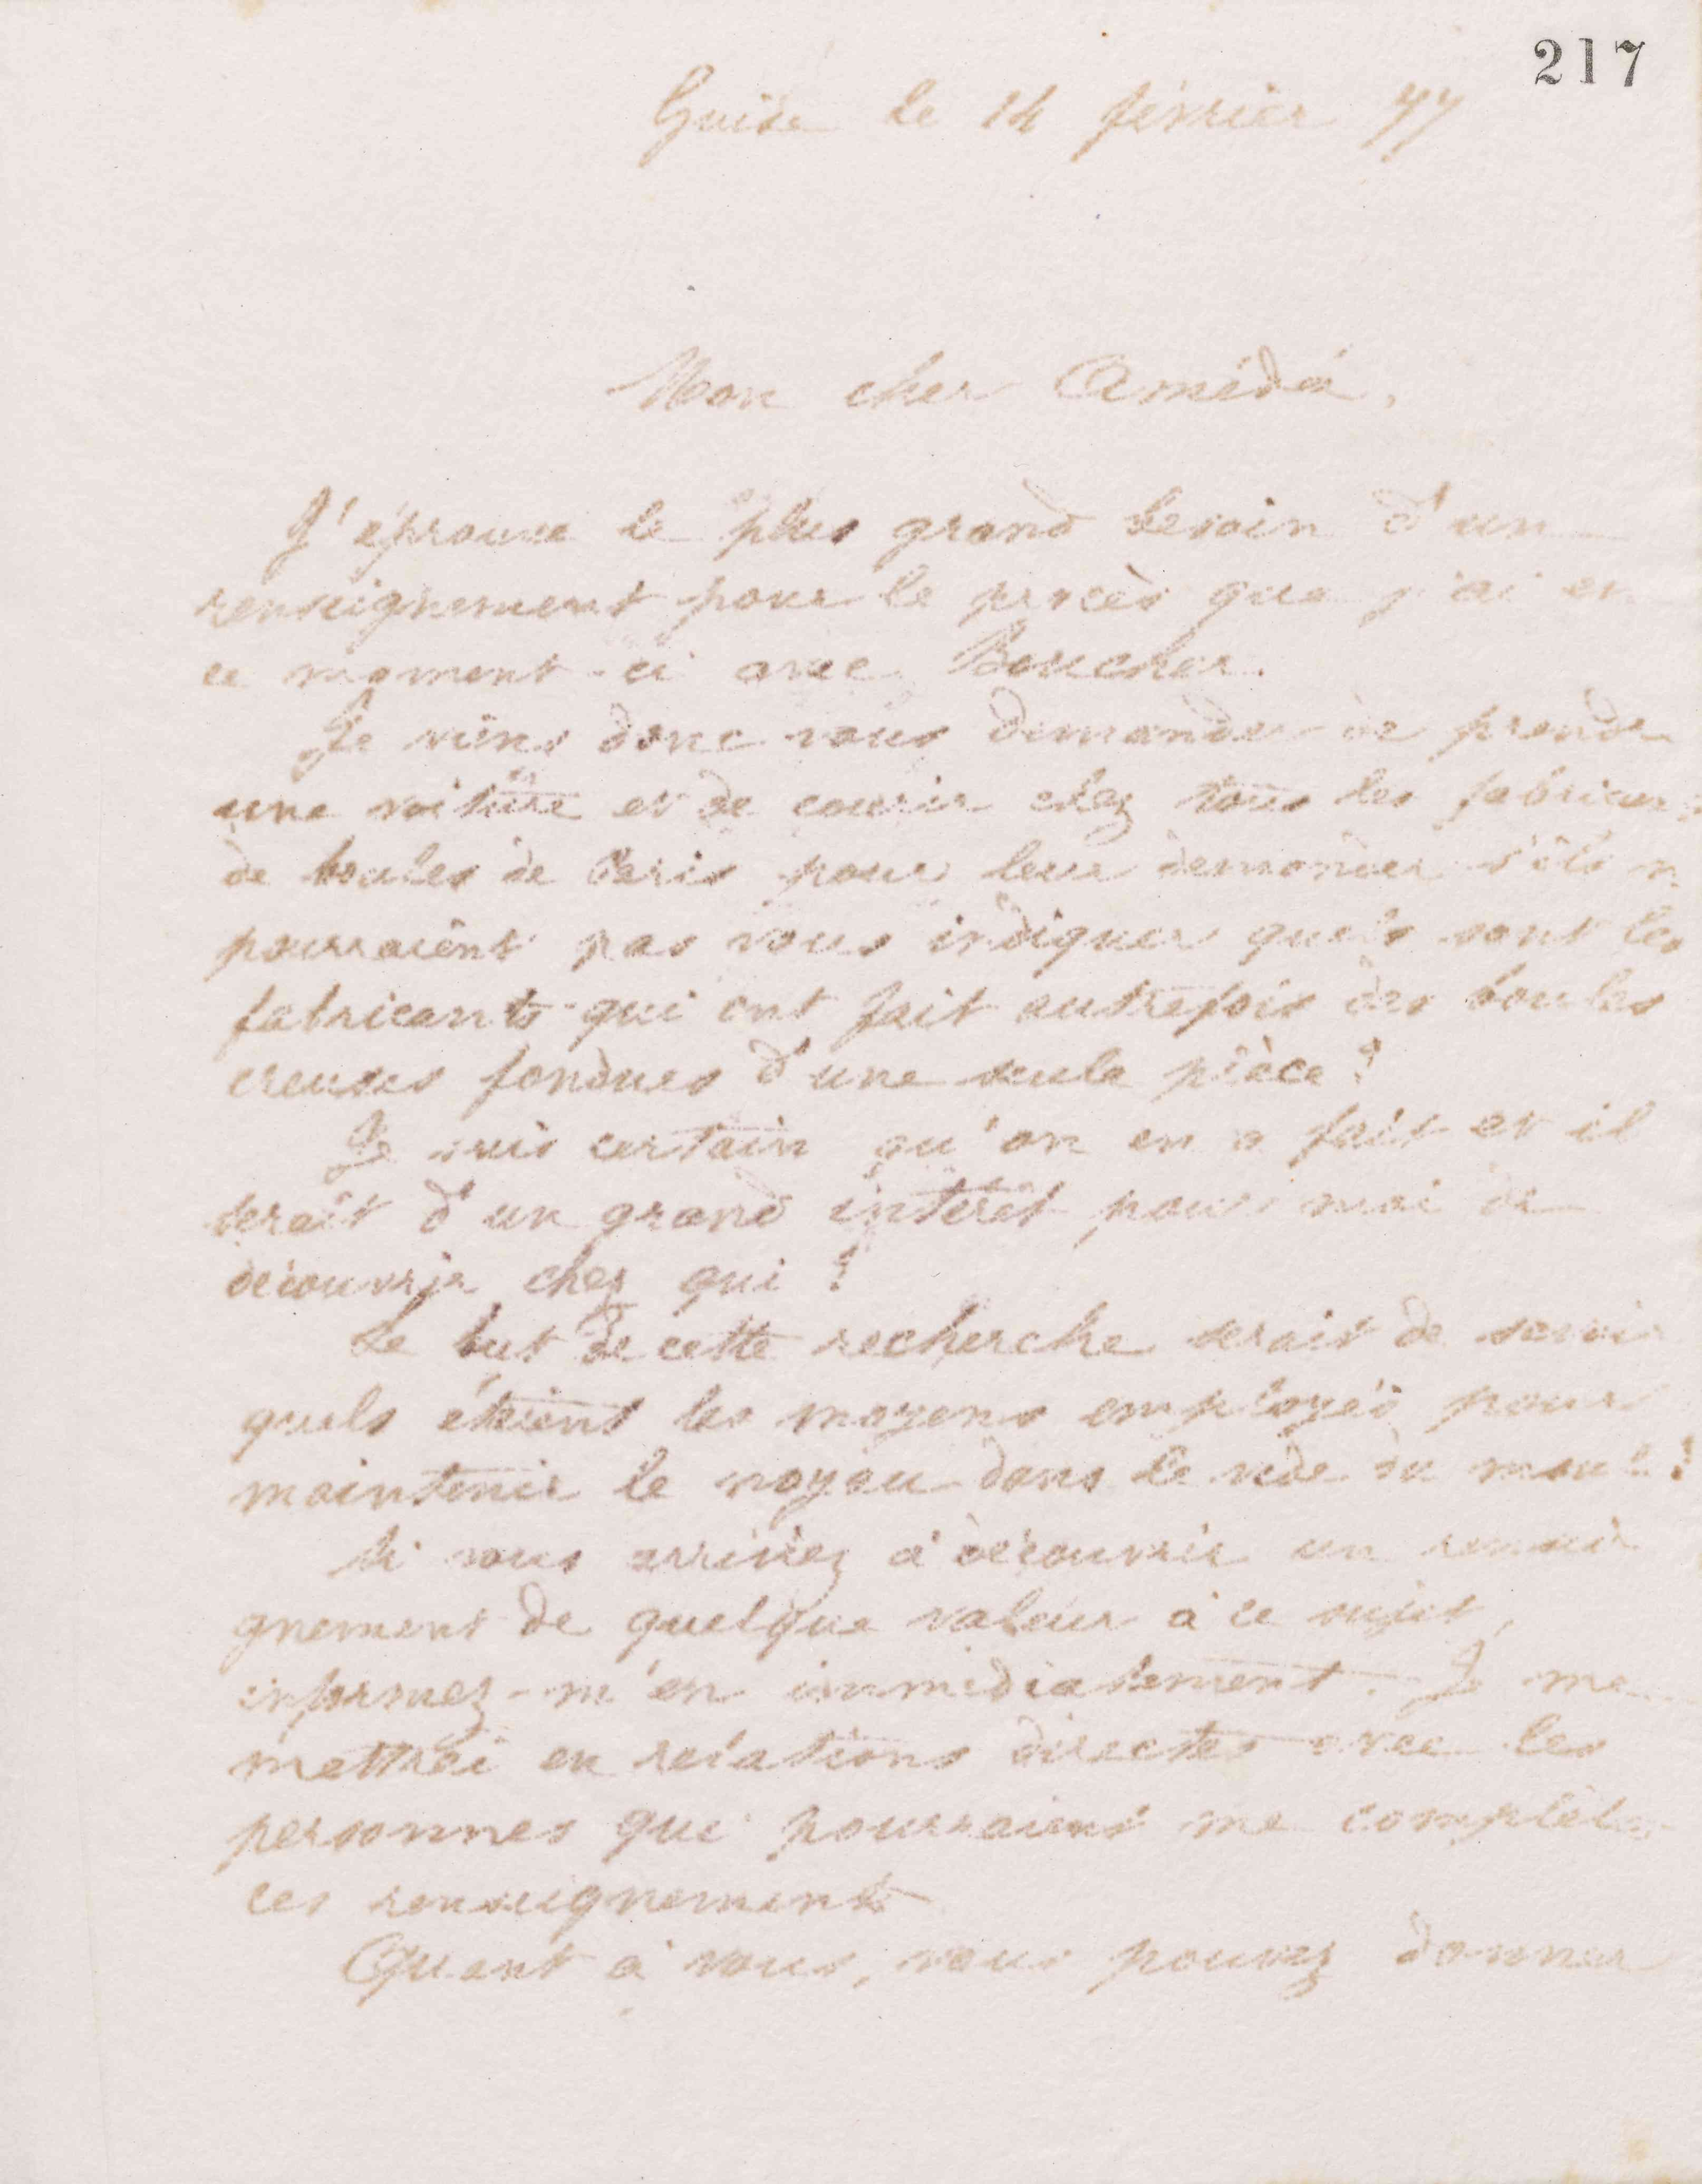 217
Guise le 14 février 77
Mon cher Amédée,
J'éprouve le plus grand besoin d'un
renseignement pour le procès que j'ai en
ce moment-ci avec Boucher.
Je viens donc vous demander de prendre
une voiture et de courir chez tous les fabricants
de boules de Paris pour leur demander s'ils n
pourraient pas vous indiquer quels sont les
fabricants qui ont fait autrefois des boules
creuses fondues d'une seule pièce ?
Je suis certain qu'on en a fait et il
serait d'un grand intérêt pour moi de
découvrir chez qui ?
Le but de cette recherche serait de savoir
quels étaient les moyens employés pour
maintenir le noyau dans le vide du moule ?
Si vous arriviez à découvrir un rensei
gnement de quelque valeur à ce sujet,
informez-m'en immédiatement. Je me
mettrai en relations directes avec les
personnes qui pourraient me compléter
ces renseignements
Quant à vous, vous pouvez donner